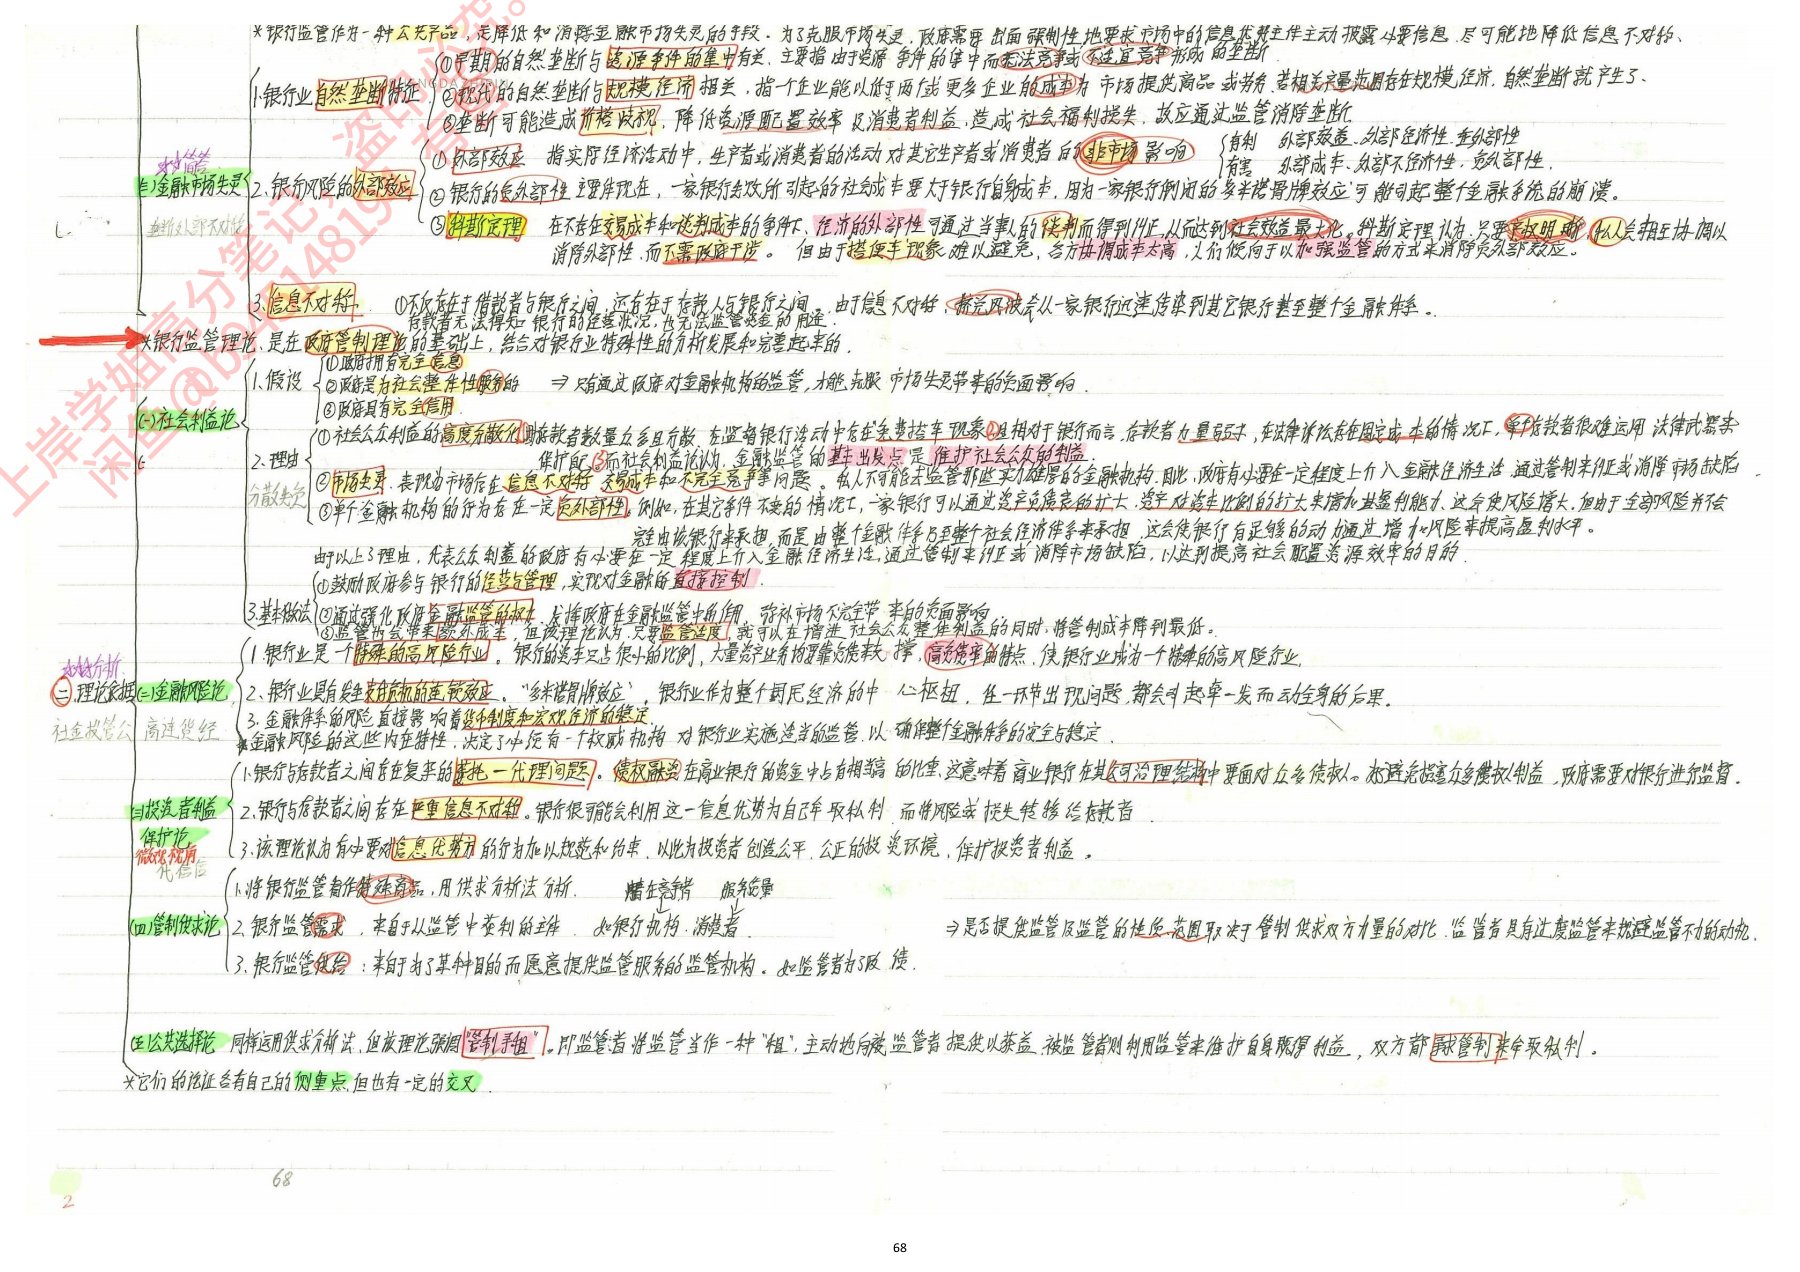 *银行监管作为一种公共产品,是降低和消除金融市场失灵的手段。为了克服市场失灵,政府需要出面强制性地要求市场中的信息优势主体主动披露必要信息,尽可能地降低信息不对称、
①早期的自然垄断与资源条件的集中有关,主要指由于资源条件的集中而无法竞争或不适宜竞争形成的垄断
1.银行业自然垄断特征 ②现代的自然垄断与规模经济相关,指一个企业能以低于两个或更多企业的成本为市场提供商品或劳务,若相关产量范围存在规模经济,自然垄断就产生了、
③垄断可能造成价格歧视,降低资源配置效率及消费者利益,造成社会福利损失,故应通过监管消除垄断
有利 外部效益、外部经济性、正外部性
①外部效应 指实际经济活动中,生产者或消费者的活动对其它生产者或消费者的非市场影响
有害 外部成本、外部不经济性,负外部性.
简答
(三)金融市场失灵 2.银行风险的外部效应 ②银行的负外部性主要体现在,一家银行失败所引起的社会成本要大于银行自身成本,因为一家银行倒闭的多米诺骨牌效应可能引起整个金融系统的崩溃。
垄断外部不对称
③科斯定理 在不存在交易成本和谈判成本的条件下,经济的外部性可通过当事人的谈判而得到纠正,从而达到社会效益最大化。科斯定理认为,只要产权明晰,私人会相互协调以
消除外部性,而不需政府干涉。但由于搭便车现象难以避免,各方协调成本太高,人们倾向于以加强监管的方式来消除负外部效应。
3.信息不对称. ①不仅存在于借款者与银行之间,还存在于存款人与银行之间。由于信息不对称,挤兑风波会从一家银行迅速传染到其它银行甚至整个金融体系。
存款者无法得知银行的经营状况,也无法监管资金的用途.
*银行监管理论、是在政府管制理论的基础上,结合对银行业特殊性的分析发展和完善起来的.
①政府拥有完全信息
1.假设 ②政府是为社会整体性服务的 ⇒只有通过政府对金融机构的监管,才能克服市场失灵带来的负面影响.
③政府具有完全信用.
(一)社会利益论
①社会公众利益的高度分散化,存款者数量众多且分散,在监督银行活动中存在免费搭车现象②且相对于银行而言,存款者力量弱小,在法律诉讼存在固定成本的情况下,单个存款者很难运用法律武器来
2.理由 保护自己③而社会利益论认为,金融监管的基本出发点是维护社会公众的利益.
分散失负
②市场失灵、表现为市场存在信息不对称 交易成本和不完全竞争等问题。私人不可能去监管那些实力雄厚的金融机构,因此,政府有必要在一定程度上介入金融经济生活,通过管制来纠正或消除市场缺陷.
③单个金融机构的行为存在一定负外部性,例如,在其它条件不变的情况下,一家银行可以通过资产负债表的扩大、资产对资本比例的扩大来增加其盈利能力,这会使风险增大,但由于全部风险并不会
完全由该银行来承担,而是由整个金融体系乃至整个社会经济体系来承担,这会使银行有足够的动力通过增加风险来提高盈利水平。
由以上3理由,代表公众利益的政府有必要在一定程度上介入金融经济生活,通过管制来纠正或消除市场缺陷,以达到提高社会配置资源效率的目的.
①鼓励政府参与银行的经营与管理,实现对金融的直接控制.
3.基本做法 ②通过强化政府金融监管的权力,发挥政府在金融监管中的作用,弥补市场不完全带来的负面影响
③监管也会带来额外成本,但该理论认为,只要监管适度,就可以在增进社会公众整体利益的同时,将管制成本降到最低。
1.银行业是一个特殊的高风险行业。银行的资本只占很小的比例,大量资产业务均要靠负债来支撑,高负债率的特点,使银行业成为一个特殊的高风险行业.
分析.
(二)理论依据 (二)金融风险论 2.银行业具有发生支付危机的连锁效应。“多米诺骨牌效应”。银行业作为整个国民经济的中心枢纽,任一环节出现问题,都会引起牵一发而动全身的后果。
社金投管公 高连货经
3.金融体系的风险直接影响着货币制度和宏观经济的稳定
*金融风险的这些内在特性,决定了必须有一个权威机构对银行业实施适当的监管,以确保整个金融体系的安全与稳定.
1.银行与存款者之间存在复杂的委托-代理问题。债权融资在商业银行的资金中占有相当高的比重,这意味着商业银行在其公司治理结构中要面对众多债权人。为避免损害众多债权人利益,政府需要对银行进行监督。
(三)投资者利益保护论 2.银行与存款者之间存在严重信息不对称。银行很可能会利用这一信息优势为自己牟取私利,而将风险或损失转移给存款者.
代信信
3.该理论认为有必要对信息优势方的行为加以规范和约束,以此为投资者创造公平、公正的投资环境,保护投资者利益。
1.将银行监管看作特殊商品,用供求分析法分析. 潜在竞争者 服务质量
(四)管制供求论 2.银行监管需求,来自于从监管中获利的主体 如银行机构、消费者. ⇒是否提供监管及监管的性质、范围取决于管制供求双方力量的对比.监管者具有过度监管来规避监管不力的动机.
3.银行监管供给:来自于为了某种目的而愿意提供监管服务的监管机构。如监管者为了政绩.
(五)公共选择论 同样运用供求分析法,但该理论强调“管制寻租”。即监管者将监管当作一种“租”,主动地向被监管者提供以获益,被监管者则利用监管来维护自身既得利益,双方都寻求管制来牟取私利。
*它们的论证各有自己的侧重点,但也有一定的交叉.
68
2
68
上岸学姐高分笔记,盗印必究。